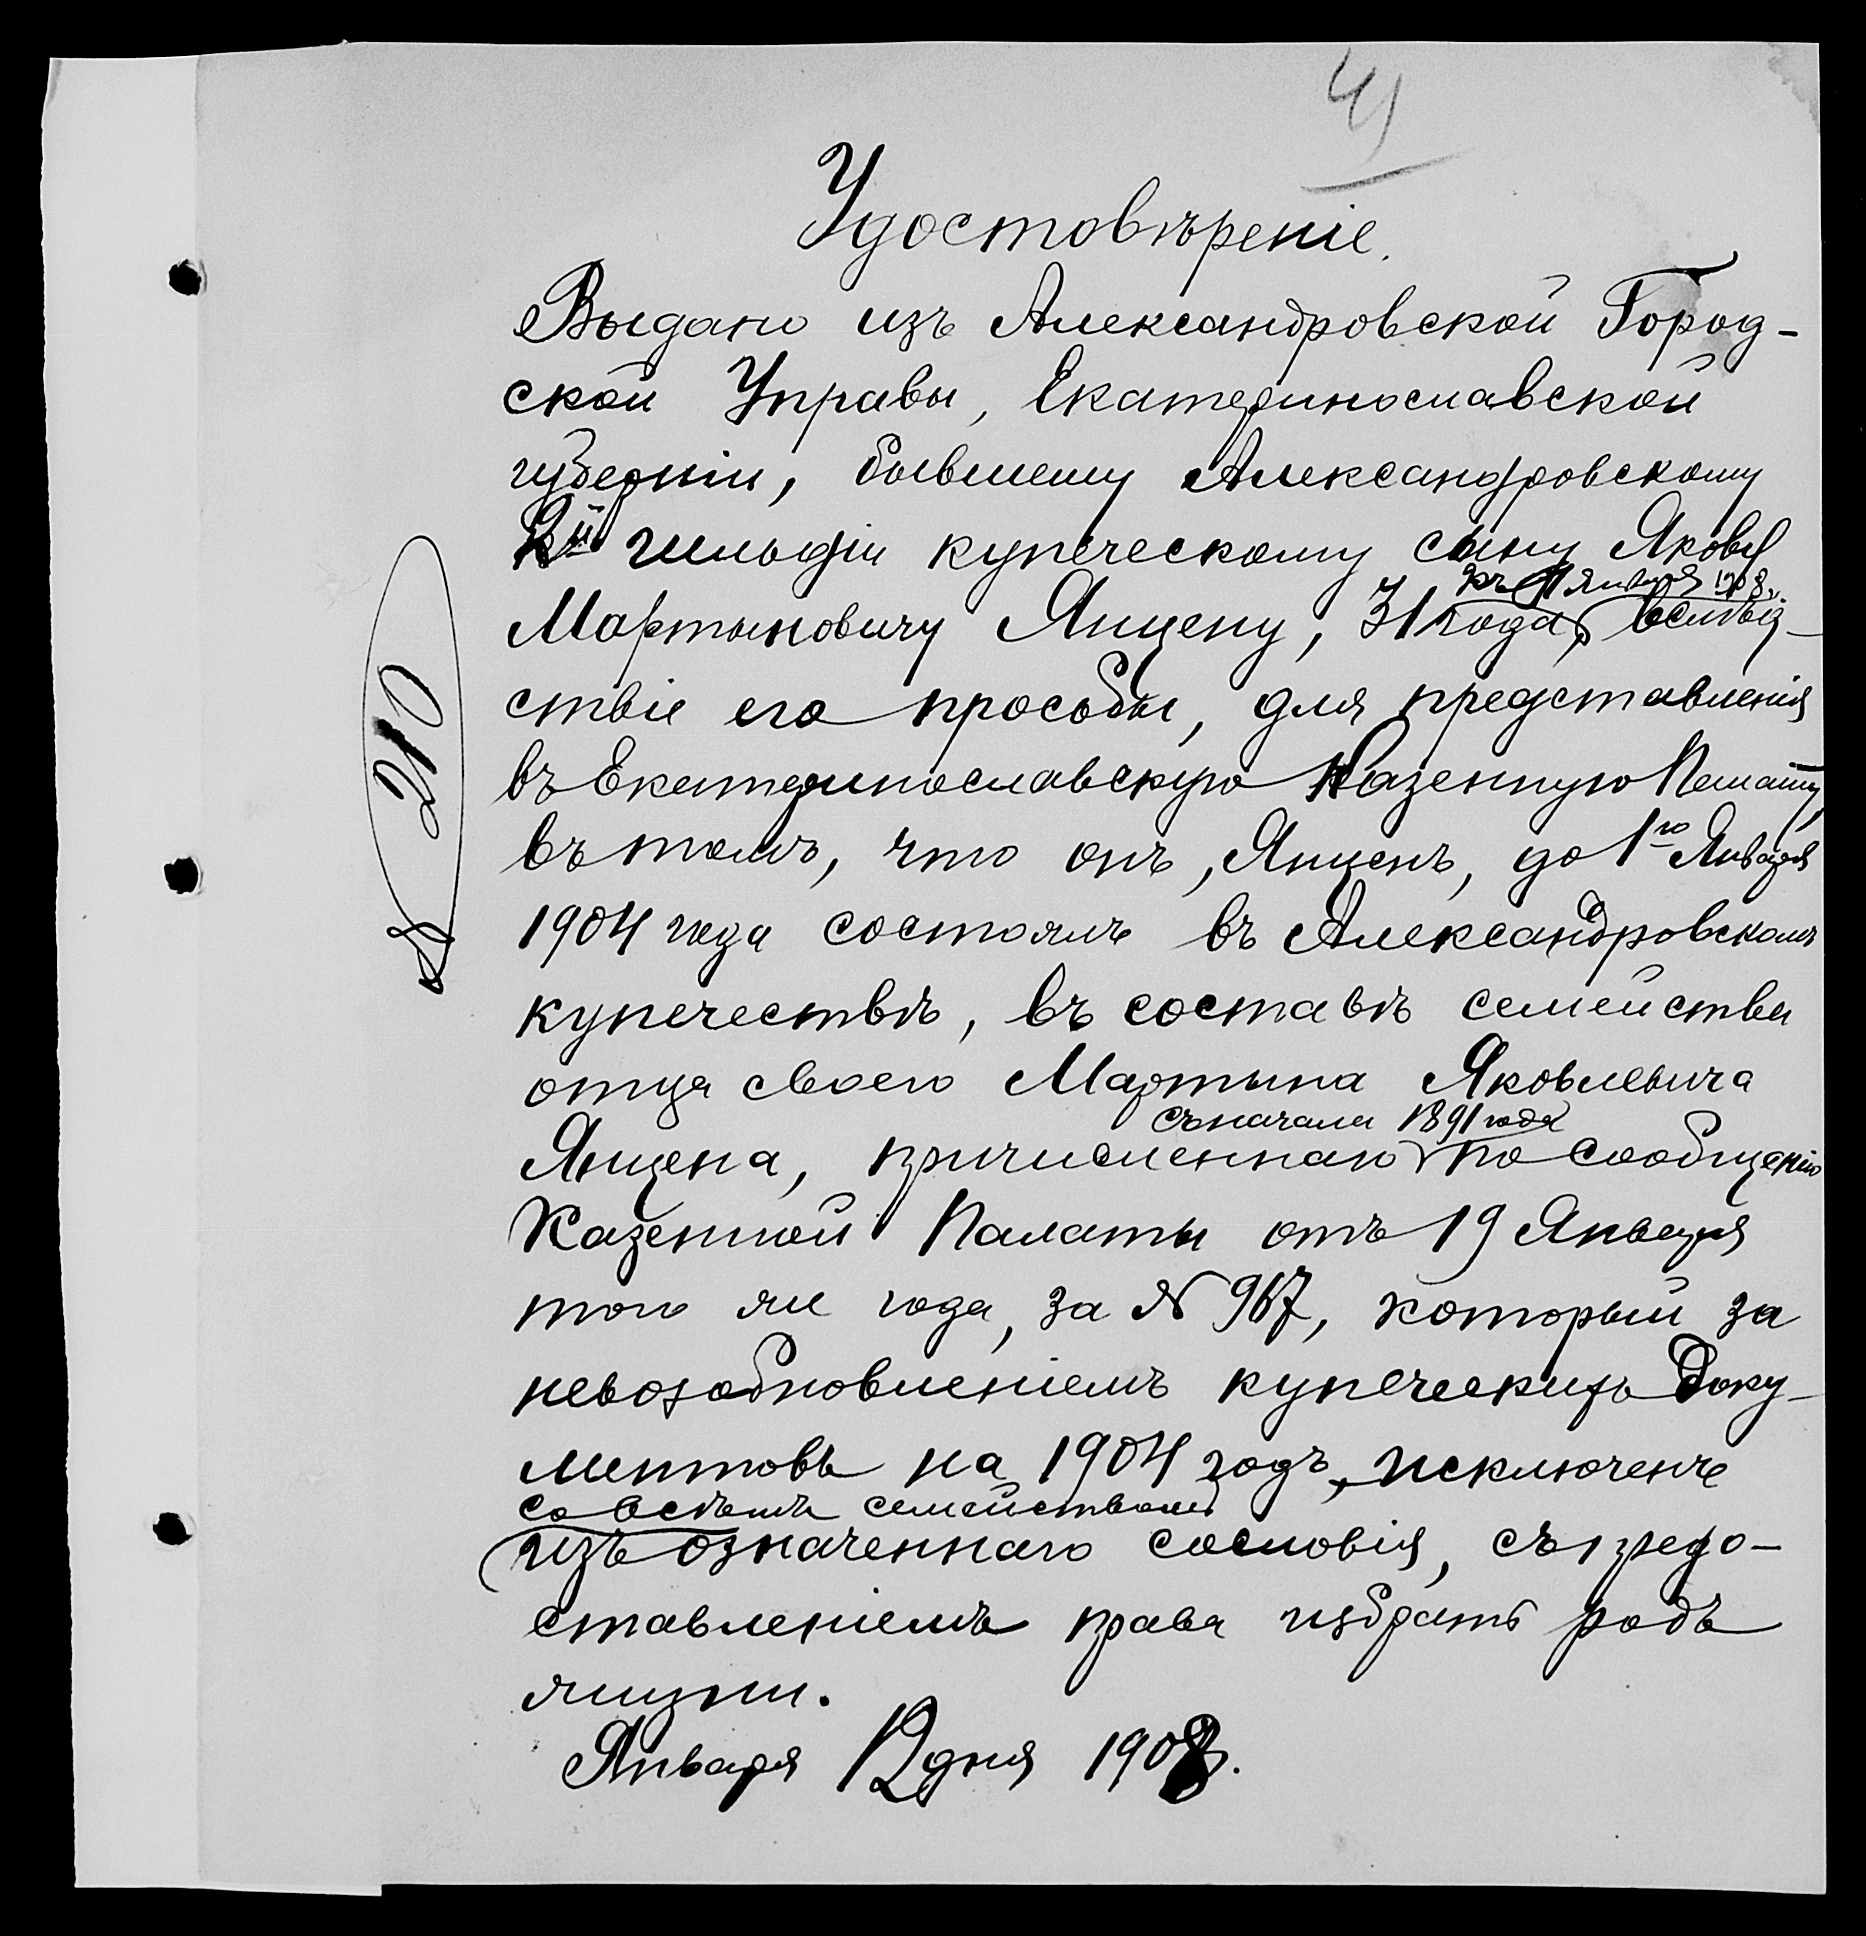 41
Удостовѣреніе.
Выдано изъ Александровской Город-
ской Управы, Екатеринославской
губерніи, бывшему Александровскому
2й гильдіи купеческому сыну Якову
къ 1 января 1908 г.
Мартыновичу Янцену, 31 года, вслѣд-
ствіе его просьбы, для представленія
въ Екатеринославскую Казенную Палату,
въ томъ, что онъ, Янценъ, до 1го Января
1904 года состоялъ въ Александровскомъ
купечествѣ, въ составѣ семейства
отца своего Мартына Яковлевича
съ начала 1891 года
Янцена, причисленнаго по сообщенію
Казенной Палаты отъ 19 Января
того же года, за № 967, который за
невозобновленіемъ купеческихъ доку-
ментовъ на 1904 годъ, исключенъ
со всѣмъ семействомъ
изъ означеннаго сословія, съ предо-
ставленіемъ права избрать родъ
жизни.
Января 12 дня 1908.
№ 210